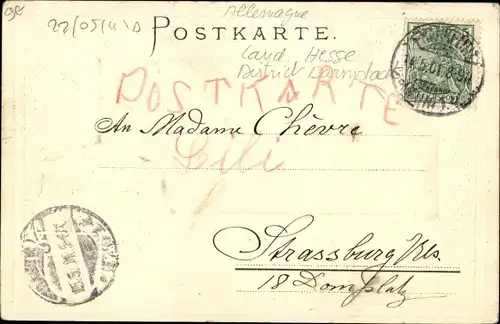 Allemagne
POSTKARTE.
Land Hesse
District Darmstadt
POSTKARTE
An Madame Chèvre
Lili
Strassburg /Els.
18 Domplatz